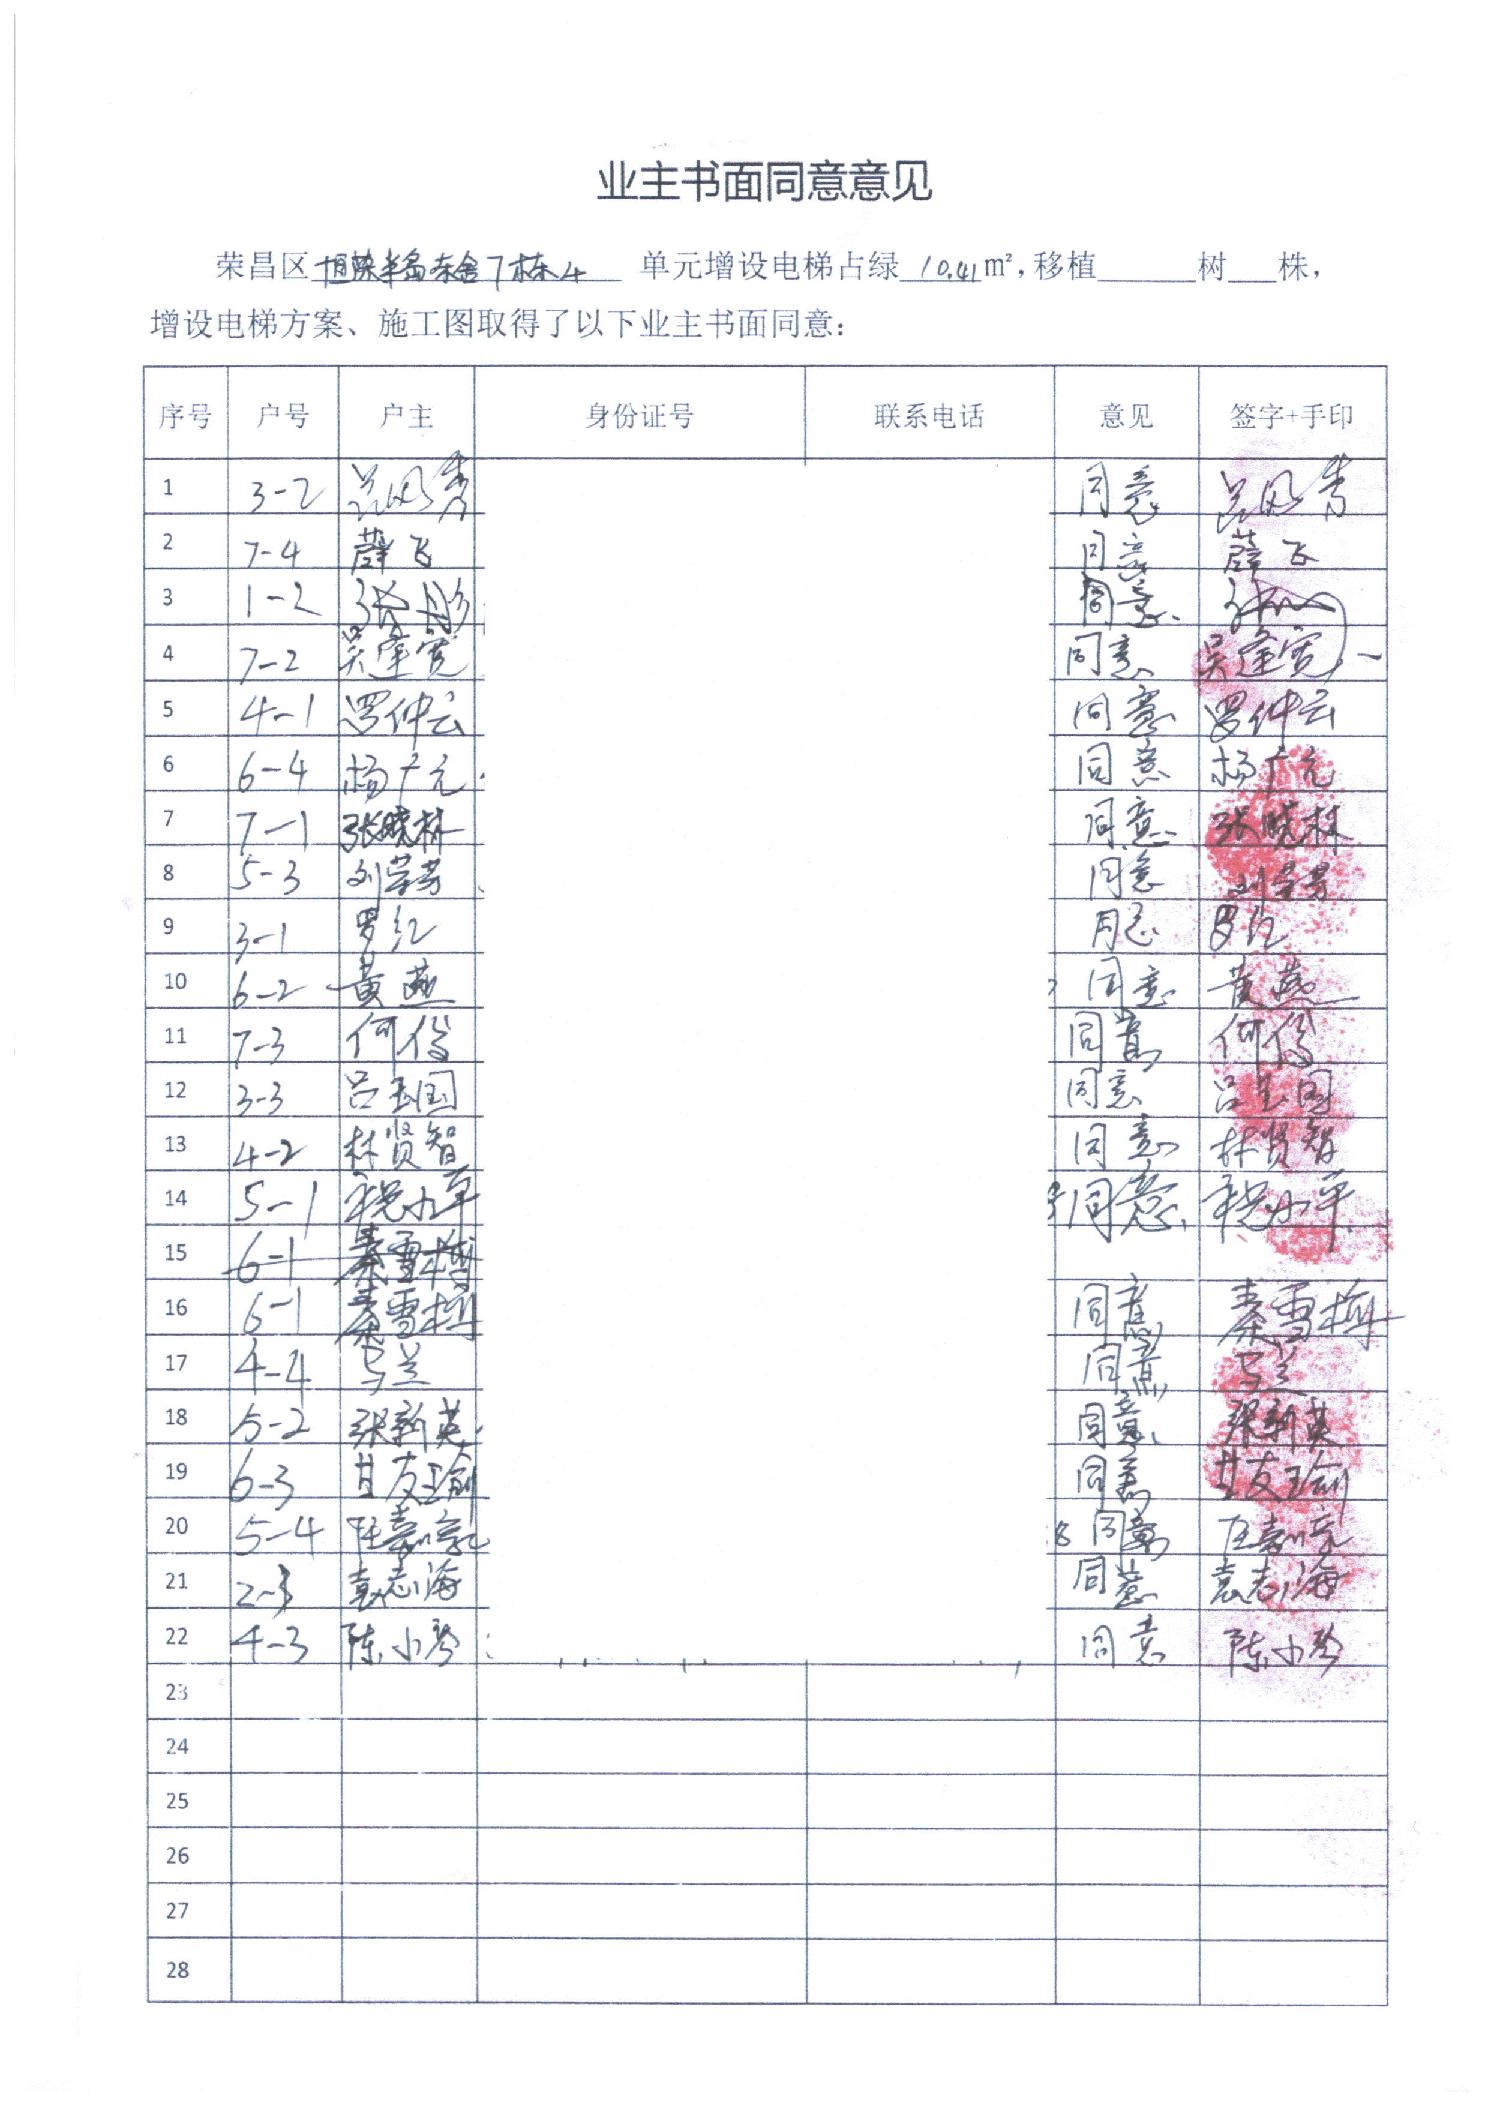 业主书面同意意见
荣昌区恒荣半岛东舍7栋4 单元增设电梯占绿10.41㎡，移植 树 株，
增设电梯方案、施工图取得了以下业主书面同意：
序号 户号 户主 身份证号 联系电话 意见 签字+手印
1 3-2 风秀 同意 风秀
2 7-4 薛飞 同意 薛飞
3 1-2 张丹彤 同意
4 7-2 吴逢宽 同意 吴逢宽
5 4-1 罗仲云 同意 罗仲云
6 6-4 杨广元 同意 杨广元
7 7-1 张晓林 同意 张晓林
8 5-3 刘荣芳 同意 刘荣芳
9 3-1 罗红 同意 罗红
10 6-2 黄燕 同意 黄燕
11 7-3 何俊 同意 何俊
12 3-3 吕玉国 同意 吕玉国
13 4-2 林贤智 同意 林贤智
14 5-1 祝小平 同意 祝小平
15 6-1 秦雪梅
16 6-1 秦雪梅 同意 秦雪梅
17 4-4 马兰 同意 马兰
18 5-2 张新英 同意 张新英
19 6-3 甘友瑜 同意 甘友瑜
20 5-4 任嘉 同意 任嘉
21 2-3 袁志海 同意 袁志海
22 4-3 陈小琴 同意 陈小琴
23
24
25
26
27
28